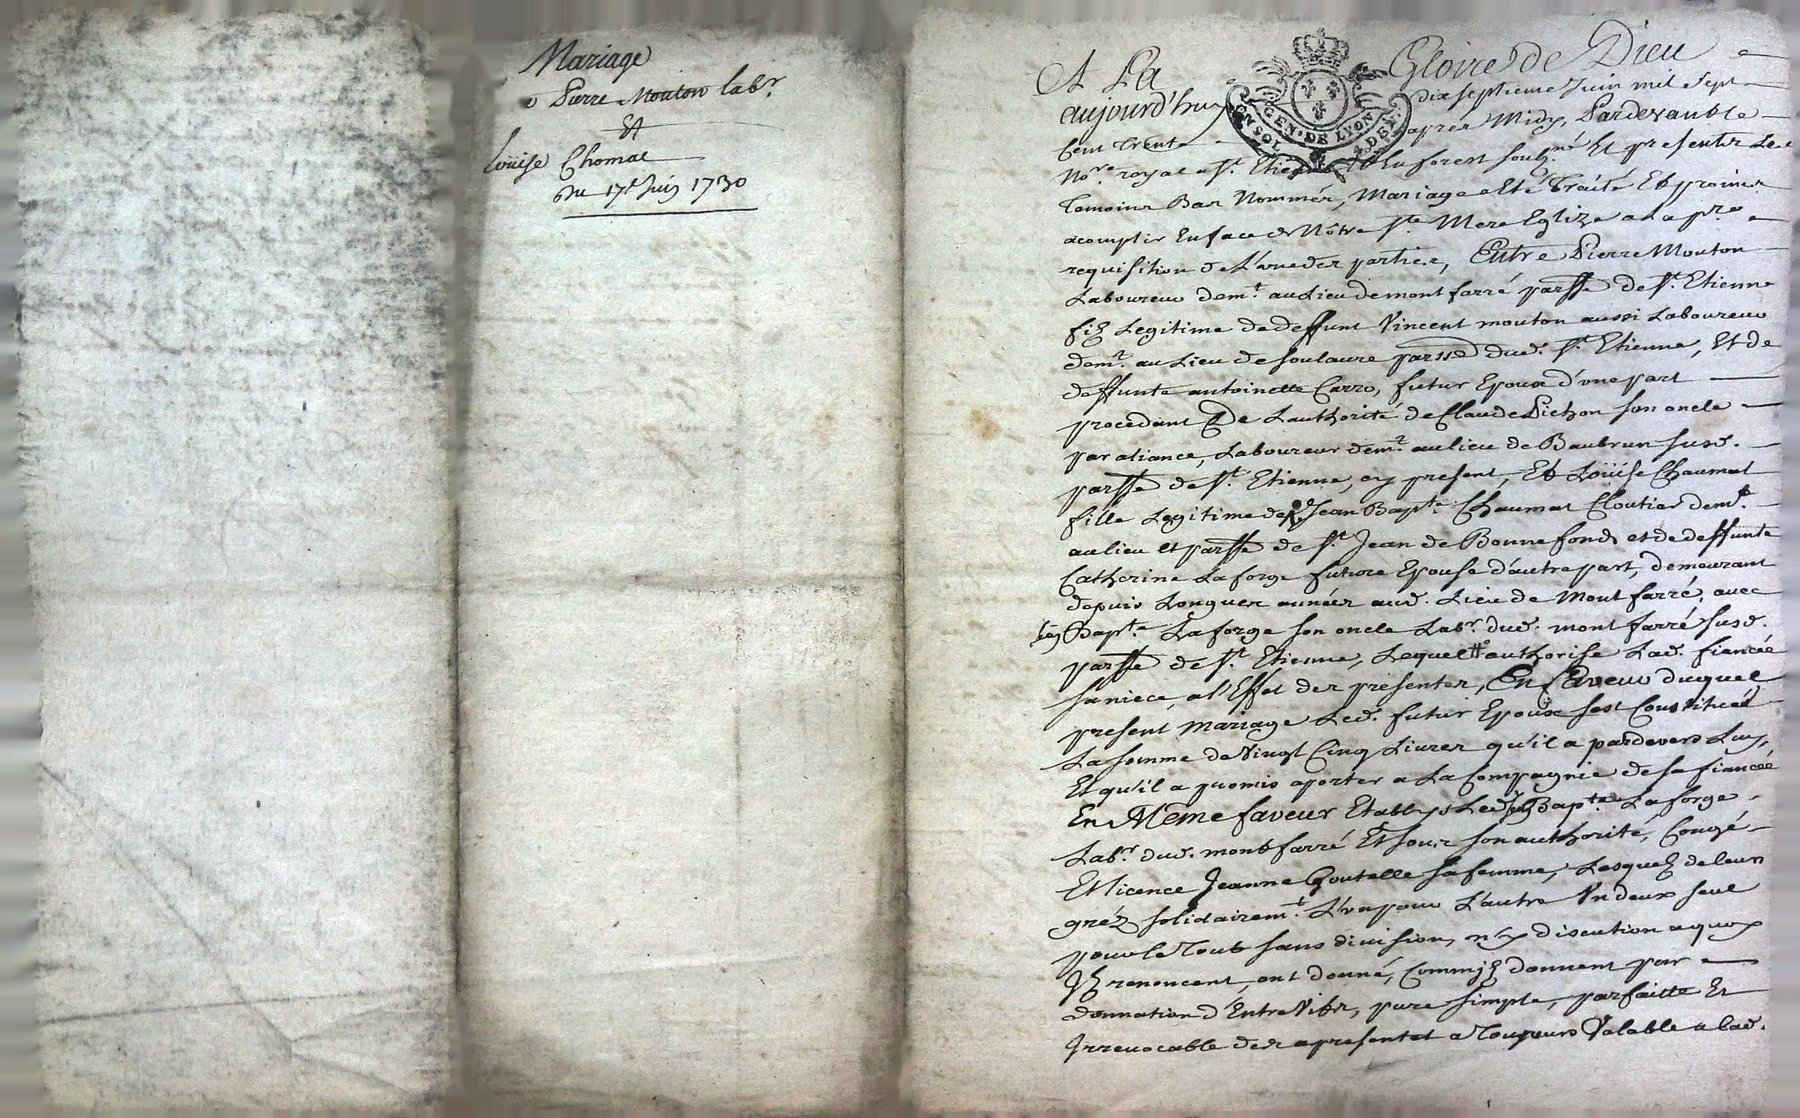 Mariage
Pierre Mouton labr.
Et
Louise Chomat
Du 17e Juin 1730
A La Gloire de Dieu
aujourd'huy dixseptieme Juin mil Sept
Cent Trente apres Midy, Pardevant le
Nore. royal a St. Etienne en forest soubzné Et presents Les
Temoins Bas Nommés, Mariage a Eté Traité Et promis
acomplir En face de Nôtre Ste. Mere Eglize a la pre.
requisition de L'une des parties, Entre Pierre Mouton
Laboureur demt. au Lieu de mont farré parsse de St. Etienne
fiz Legitime de deffunt Vincent mouton aussi Laboureur
demt. au Lieu de soulaure parsse dud. St. Etienne, Et de
deffunte antoinette Carro, futur Epoux d'une part
procedant De L'authorité de Claude Pichon son oncle
par aliance, Laboureur demt. au lieu de Baubrun susd.
parsse de St. Etienne, cy present, Et Loüise Chaumat
fille Legitime de Jean Bapte. Chaumat Cloutier demt.
au lieu et parsse de St. Jean de Bonnefonds et de deffunte
Catherine Laforge future Epouse d'autre part, demeurant
depuis Longues années aud. Lieu de Mont farré, avec
Bapte. Laforge son oncle Labr. dud. mont farré susd.
parsse de St. Etienne, Lequel authorise Lad. fiancée
sa niece, a l'Effet des presentes, En faveur duquel
present mariage Led. futur Epoux s'est Constitué
La somme de Vingt Cinq Livres qu'il a pardevers Luy,
Et qu'il a promis aporter a La Compagnie de sa fiancée
En Meme faveur Etablys Led. Bapte. Laforge
Labr. dud. mont farré Et sous son authorité, Congé
Et licence Jeanne Goutelle sa femme, Lesquelz de leurs
gréz solidairemt. L'un pour L'autre Un deux seul
pour le Tout sans division, ny discution a quoy
Ilz renoncent, ont donné, Comm'ilz donnent par
donnation d'Entre Vifs, pure simple, parfaitte Et
Irrevocable des a present et a Toujours Valable a lad.
GEN. DE LYON